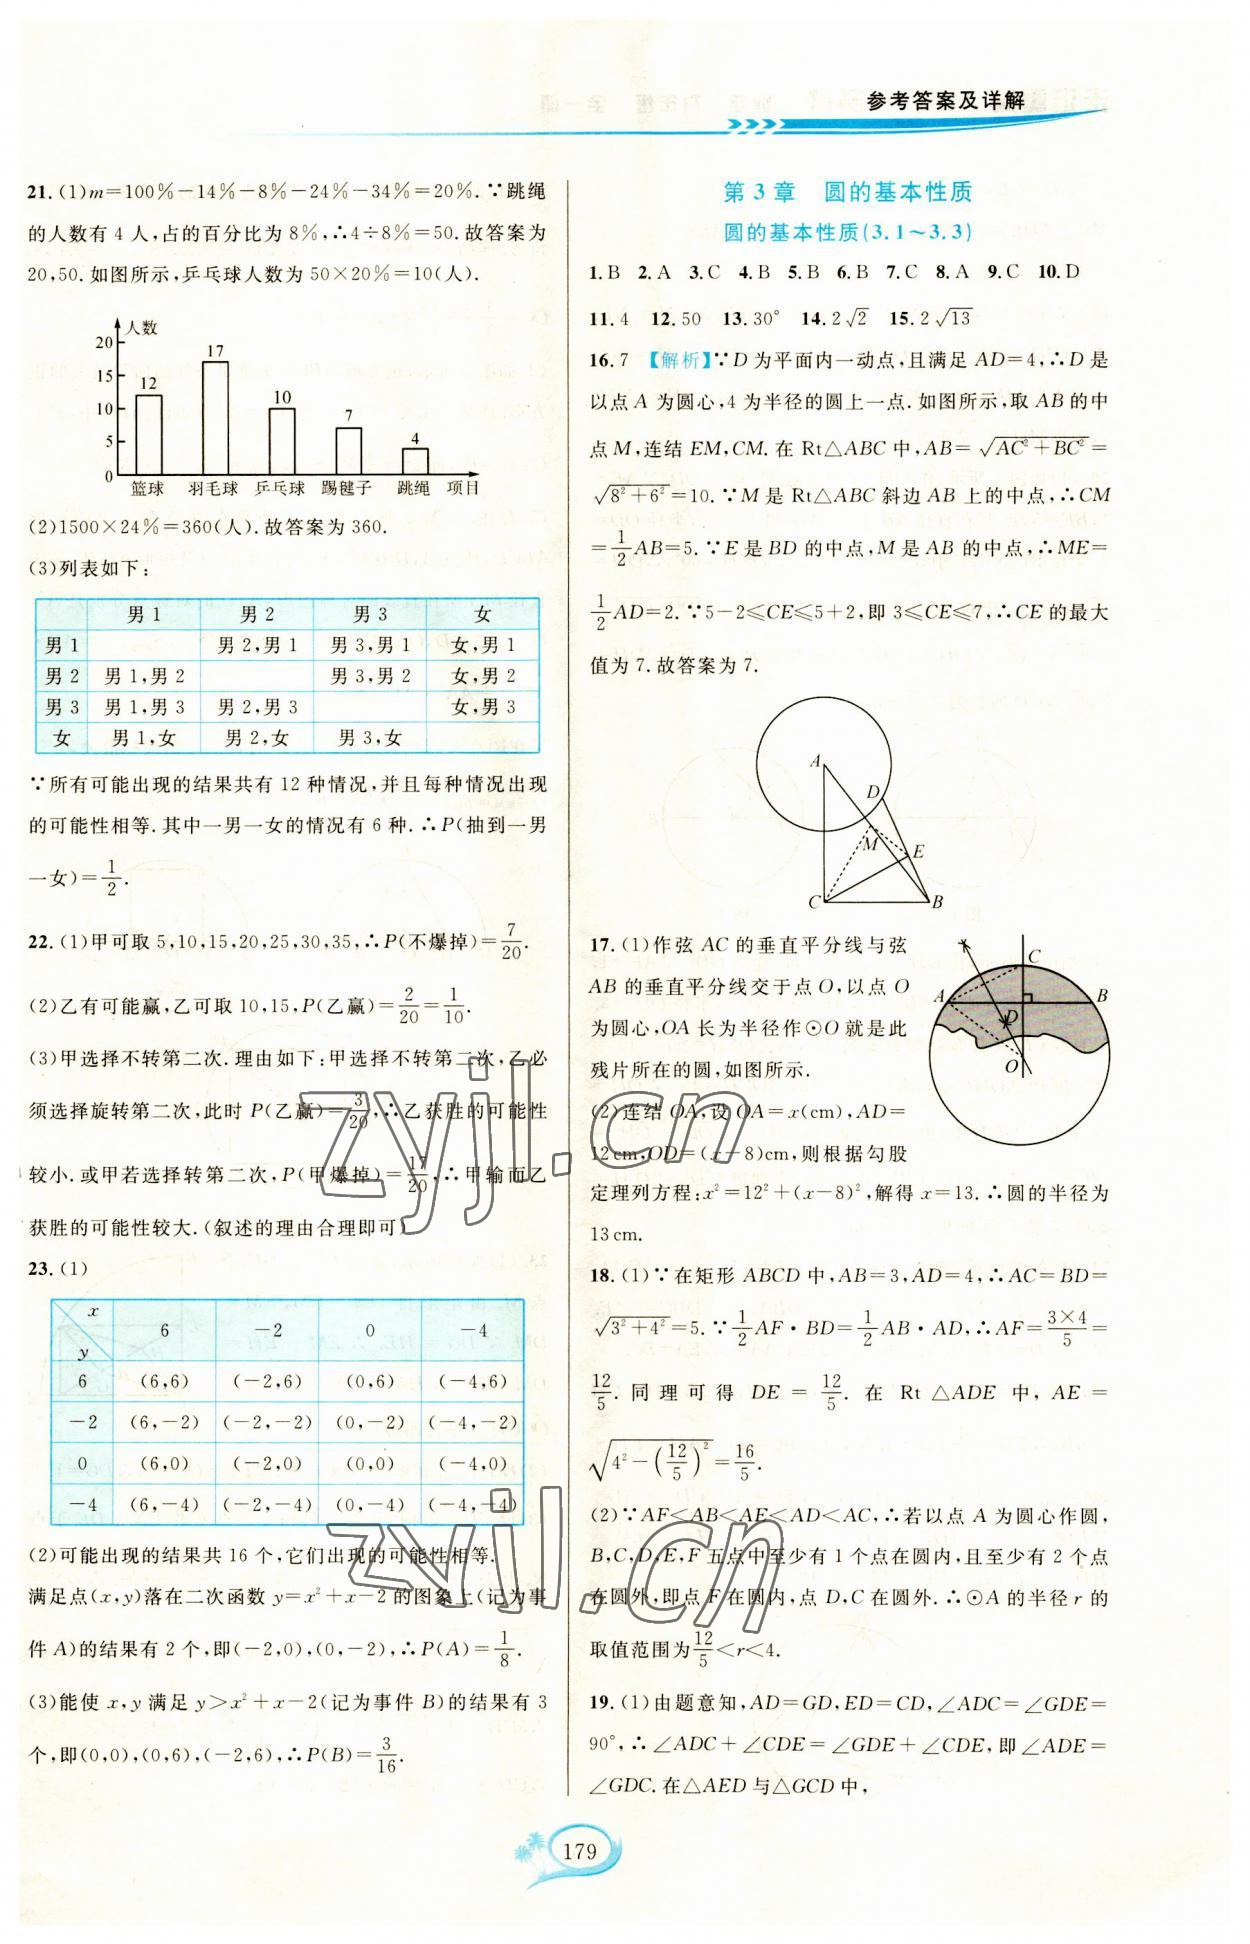 参考答案及详解
21.(1)m=100%-14%-8%-24%-34%=20%.∵跳绳
的人数有4人,占的百分比为8%,∴4÷8%=50.故答案为
20,50.如图所示,乒乓球人数为50×20%=10(人).
人数
20
15
10
5
0
12
17
10
7
4
篮球 羽毛球 乒乓球 踢毽子 跳绳 项目
(2)1500×24%=360(人).故答案为360.
(3)列表如下:
男1 男2 男3 女
男1 男2,男1 男3,男1 女,男1
男2 男1,男2 男3,男2 女,男2
男3 男1,男3 男2,男3 女,男3
女 男1,女 男2,女 男3,女
∵所有可能出现的结果共有12种情况,并且每种情况出现
的可能性相等.其中一男一女的情况有6种.∴P(抽到一男
一女)=1/2.
22.(1)甲可取5,10,15,20,25,30,35,∴P(不爆掉)=7/20.
(2)乙有可能赢,乙可取10,15,P(乙赢)=2/20=1/10.
(3)甲选择不转第二次.理由如下:甲选择不转第二次,乙必
须选择旋转第二次,此时P(乙赢)=3/20,∴乙获胜的可能性
较小.或甲若选择转第二次,P(甲爆掉)=17/20,∴甲输而乙
获胜的可能性较大.(叙述的理由合理即可)
23.(1)
x
y
6 -2 0 -4
6 (6,6) (-2,6) (0,6) (-4,6)
-2 (6,-2) (-2,-2) (0,-2) (-4,-2)
0 (6,0) (-2,0) (0,0) (-4,0)
-4 (6,-4) (-2,-4) (0,-4) (-4,-4)
(2)可能出现的结果共16个,它们出现的可能性相等.
满足点(x,y)落在二次函数y=x²+x-2的图象上(记为事
件A)的结果有2个,即(-2,0),(0,-2),∴P(A)=1/8.
(3)能使x,y满足y>x²+x-2(记为事件B)的结果有3
个,即(0,0),(0,6),(-2,6),∴P(B)=3/16.
第3章 圆的基本性质
圆的基本性质(3.1~3.3)
1.B 2.A 3.C 4.B 5.B 6.B 7.C 8.A 9.C 10.D
11.4 12.50 13.30° 14.2√2 15.2√13
16.7 【解析】∵D为平面内一动点,且满足AD=4,∴D是
以点A为圆心,4为半径的圆上一点.如图所示,取AB的中
点M,连结EM,CM.在Rt△ABC中,AB=√(AC²+BC²)=
√(8²+6²)=10.∵M是Rt△ABC斜边AB上的中点,∴CM
=1/2AB=5.∵E是BD的中点,M是AB的中点,∴ME=
1/2AD=2.∵5-2≤CE≤5+2,即3≤CE≤7,∴CE的最大
值为7.故答案为7.
A
D
M
E
C
B
17.(1)作弦AC的垂直平分线与弦
AB的垂直平分线交于点O,以点O
为圆心,OA长为半径作⊙O就是此
残片所在的圆,如图所示.
C
A
B
D
O
(2)连结OA,设OA=x(cm),AD=
12cm,OD=(x-8)cm,则根据勾股
定理列方程:x²=12²+(x-8)²,解得x=13.∴圆的半径为
13cm.
18.(1)∵在矩形ABCD中,AB=3,AD=4,∴AC=BD=
√(3²+4²)=5.∵1/2AF·BD=1/2AB·AD,∴AF=3×4/5=
12/5.同理可得DE=12/5.在Rt△ADE中,AE=
√(4²-(12/5)²)=16/5.
(2)∵AF<AB<AE<AD<AC,∴若以点A为圆心作圆,
B,C,D,E,F五点中至少有1个点在圆内,且至少有2个点
在圆外,即点F在圆内,点D,C在圆外.∴⊙A的半径r的
取值范围为12/5<r<4.
19.(1)由题意知,AD=GD,ED=CD,∠ADC=∠GDE=
90°,∴∠ADC+∠CDE=∠GDE+∠CDE,即∠ADE=
∠GDC.在△AED与△GCD中,
179
zyjl.cn
zyjl.cn